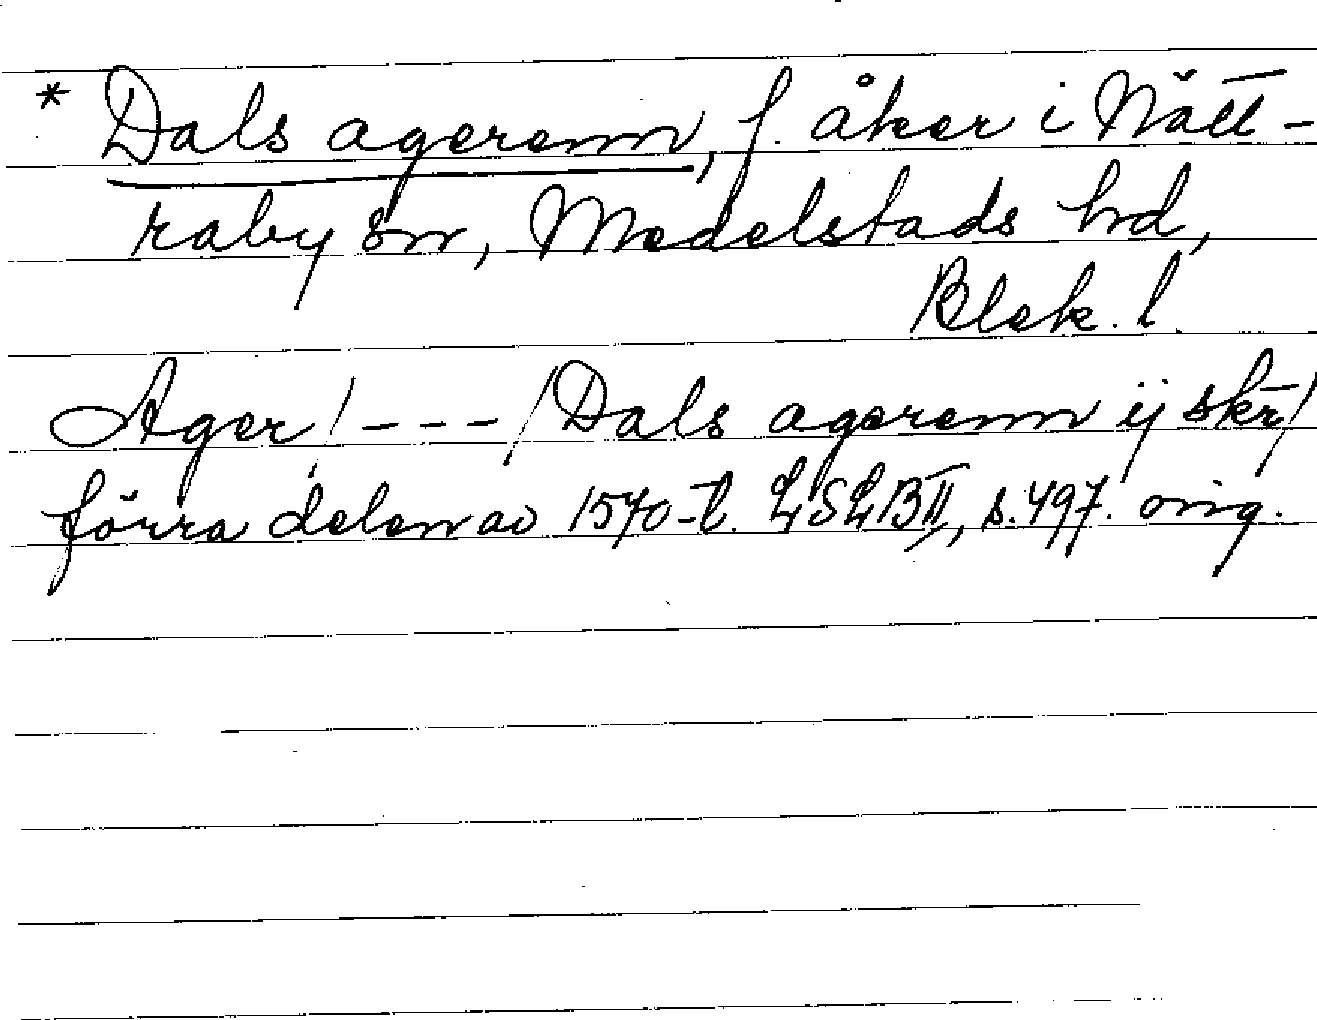 * Dals agerenn, f. åker i Nätt-
raby sn, Medelstads hd,
Blek. l.
Ager /---/ Dals agerenn ij skr/
förra delen av 1570-t. LSLB II, s. 497. orig.